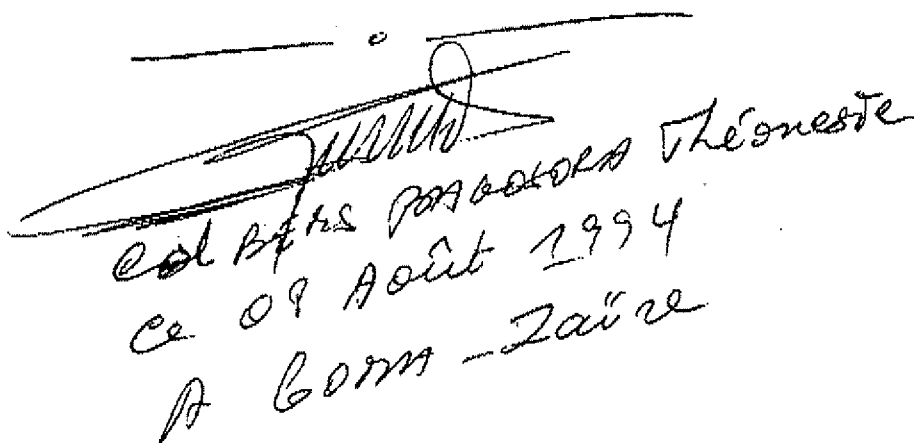 Col BEMS BAGOSORA Théoneste
Ce 08 Août 1994
A GOMA - Zaïre